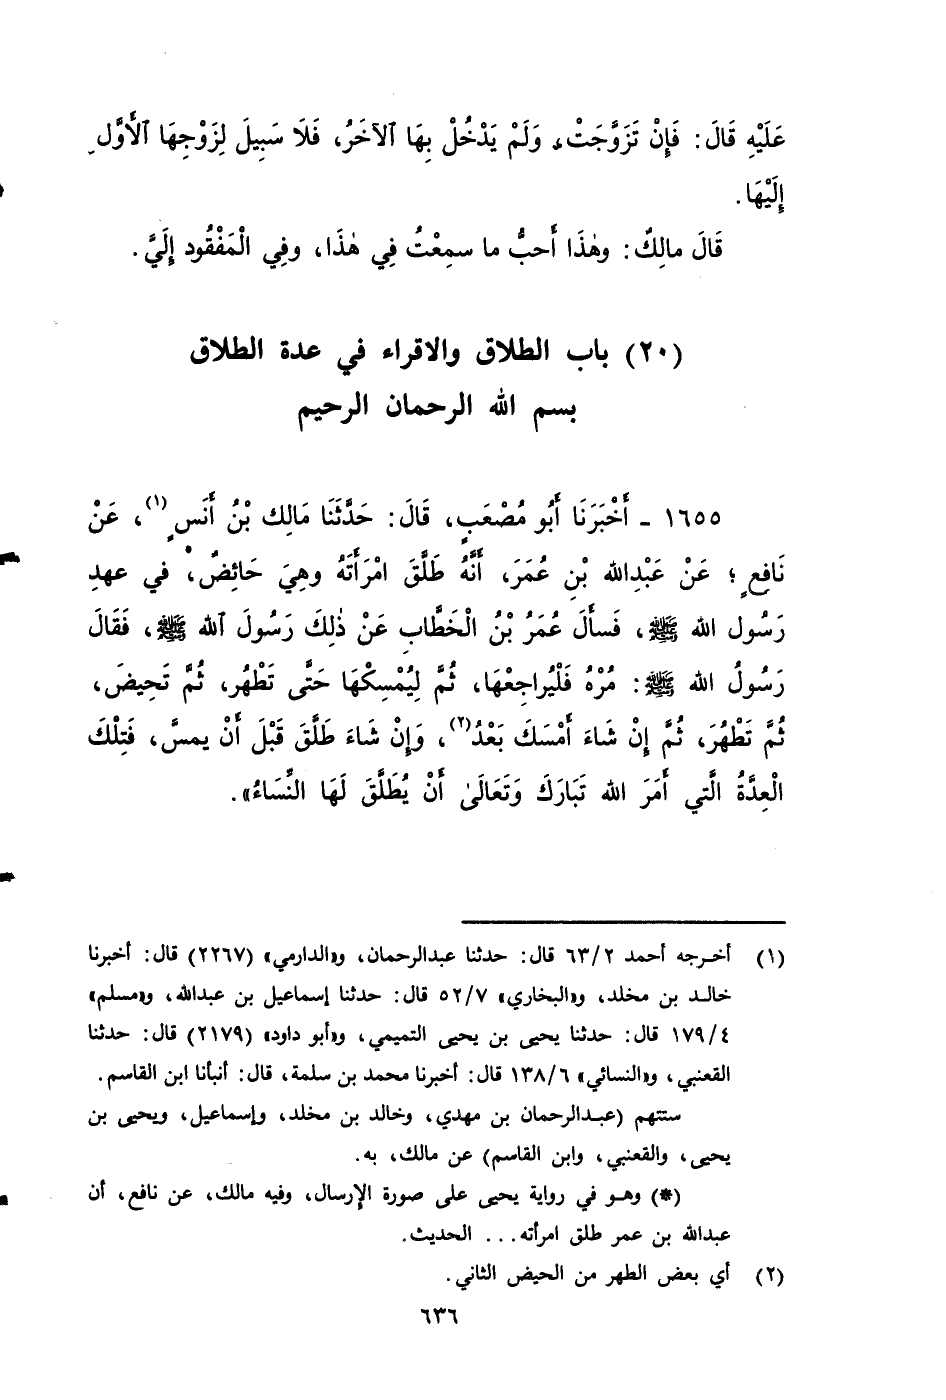 عَلَيْهِ قَالَ: فَإِنْ تَزَوَّجَتْ، وَلَمْ يَدْخُلْ بِهَا ٱلآخَرُ، فَلَا سَبِيلَ لِزَوْجِهَا ٱلأَوَّلِ
إِلَيْهَا.
قَالَ مالِكٌ: وهٰذَا أَحبُّ ما سمِعْتُ فِي هٰذَا، وفِي الْمَفْقُود إِلَيَّ.
(٢٠) باب الطلاق والاقراء في عدة الطلاق
بسم الله الرحمان الرحيم
١٦٥٥ - أَخْبَرَنَا أَبُو مُصْعَبٍ، قَالَ: حَدَّثَنَا مَالِك بْنُ أَنَسٍ(١)، عَنْ
نَافِعٍ؛ عَنْ عَبْدِالله بْنِ عُمَرَ، أَنَّهُ طَلَّقَ امْرَأَتَهُ وهِيَ حَائِضٌ، في عهدِ
رَسُول الله ﷺ، فَسأَلَ عُمَرُ بْنُ الْخَطَّابِ عَنْ ذٰلِكَ رَسُولَ ٱلله ﷺ، فَقَالَ
رَسُولُ الله ﷺ: مُرْهُ فَلْيُراجِعْهَا، ثُمَّ لِيُمْسِكْهَا حَتَّى تَطْهُر، ثُمَّ تَحِيضَ،
ثُمَّ تَطْهُرَ، ثُمَّ إِنْ شَاءَ أَمْسَكَ بَعْدُ(٢)، وَإِنْ شَاءَ طَلَّقَ قَبْلَ أَنْ يمسَّ، فَتِلْكَ
الْعِدَّةُ الَّتي أَمَرَ الله تَبَارَكَ وَتَعَالَىٰ أَنْ يُطَلَّقَ لَهَا النِّسَاءُ».
(١) أخرجه أحمد ٦٣/٢ قال: حدثنا عبدالرحمان، و«الدارمي» (٢٢٦٧) قال: أخبرنا
خالد بن مخلد، و«البخاري» ٥٢/٧ قال: حدثنا إسماعيل بن عبدالله، و«مسلم»
١٧٩/٤ قال: حدثنا يحيى بن يحيى التميمي، و«أبو داود» (٢١٧٩) قال: حدثنا
القعنبي، و«النسائي» ١٣٨/٦ قال: أخبرنا محمد بن سلمة، قال: أنبأنا ابن القاسم.
ستتهم (عبدالرحمان بن مهدي، وخالد بن مخلد، وإسماعيل، ويحيى بن
يحيى، والقعنبي، وابن القاسم) عن مالك، به.
(*) وهو في رواية يحيى على صورة الإرسال، وفيه مالك، عن نافع، أن
عبدالله بن عمر طلق امرأته... الحديث.
(٢) أي بعض الطهر من الحيض الثاني.
٦٣٦